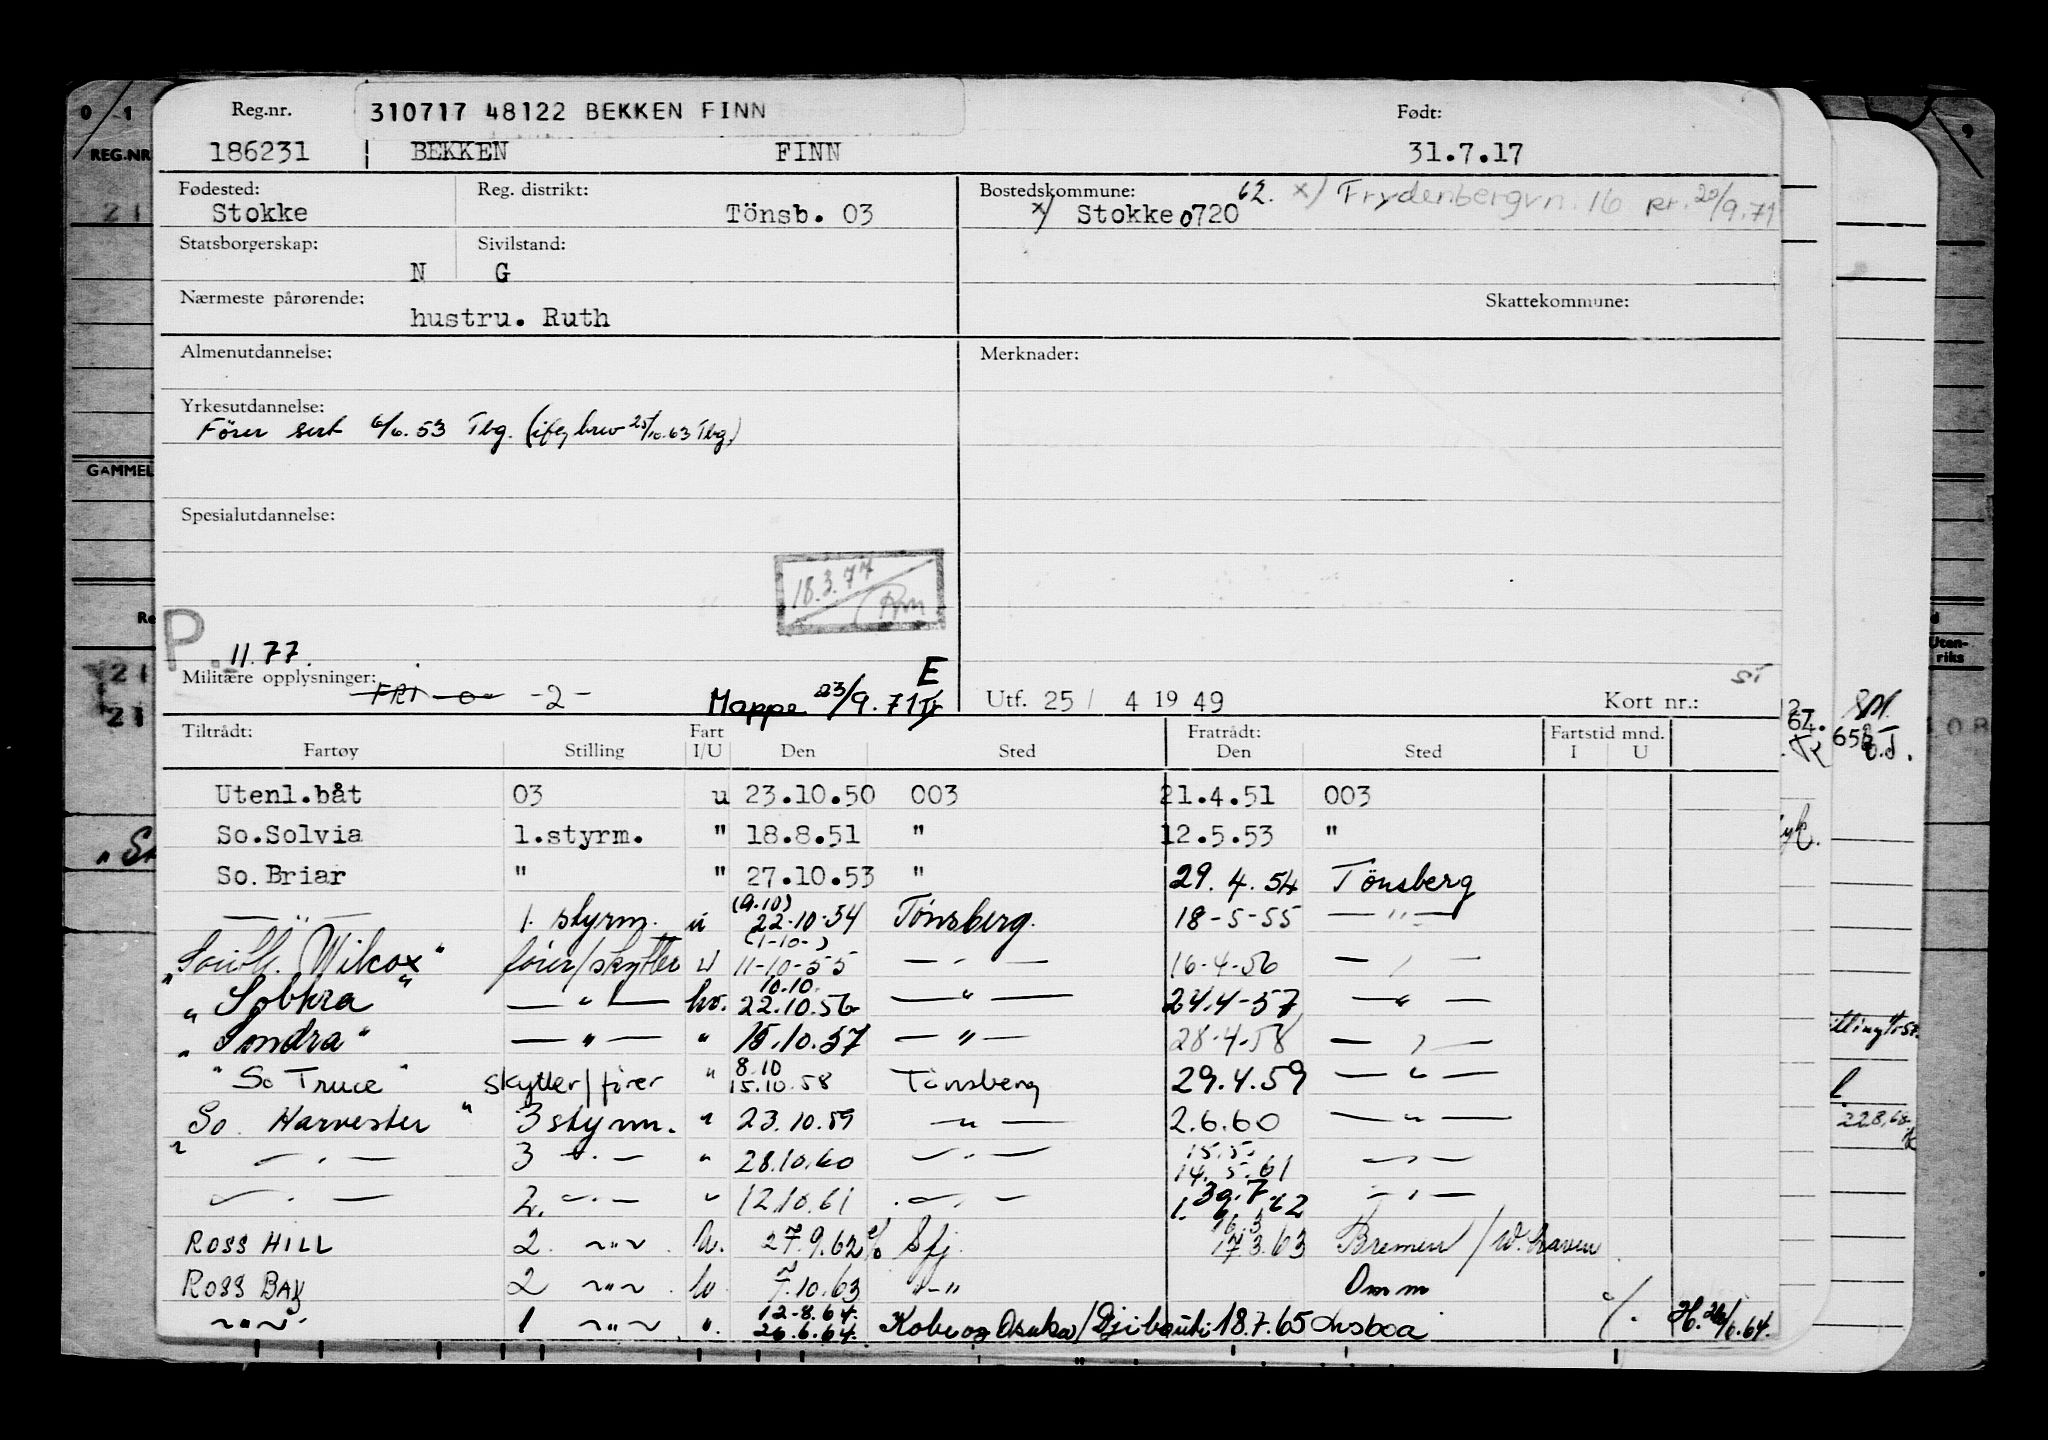 Reg.nr. 310717 48122 BEKKEN FINN Født:
186231 BEKKEN FINN 31.7.17
Fødested: Reg. distrikt: Bostedskommune: 62. x) Frydenbergvn. 16 Kr. 20/9.71
Stokke Tönsb. 03 x) Stokke 0720
Statsborgerskap: Sivilstand:
N G
Nærmeste pårørende: Skattekommune:
hustru. Ruth
Almenutdannelse: Merknader:
Yrkesutdannelse:
Förer sert 6/6.53 Tbg. (ifg brev 25/10.63 Tbg.)
Spesialutdannelse:
18.3.77
P. 11.77.
Militære opplysninger: E
FRI -o- -2- Mappe 23/9.71 Tr Utf. 25/ 4 19 49 Kort nr.:
Tiltrådt: Fart Fratrådt: Fartstid mnd.
Fartøy Stilling I/U Den Sted Den Sted I U
Utenl.båt 03 u 23.10.50 003 21.4.51 003
So.Solvia 1.styrm. " 18.8.51 " 12.5.53 "
So.Briar " " 27.10.53 " 29.4.54 Tönsberg
(9.10)
— " — 1. styrm. u 22.10.54 Tönsberg. 18-5-55 — " —
(1-10-)
"Southl. Wilcox" fører/skytter u 11-10-55 — " — 16-4-56 — " —
10.10.
"Sobkra" — " — hv. 22.10.56 — " — 24.4-57 — " —
"Sondra" — " — " 15.10.57 — " — 28-4-58 — " —
8.10
"So Truce" skytter/fører " 15.10.58 Tönsberg 29.4.59 — " —
"So Harvester" 3 styrm. " 23.10.59 — " — 2.6.60 — " —
15.5.
— " — 3 — " — " 28.10.60 — " — 14.5.61 — " —
30.7.
— " — 2. — " — " 12.10.61 — " — 1. 62 — " —
16.3
ROSS HILL 2. — " — u. 27.9.62 % Sfj. 17.3.63 Bremen / W.haven
ROSS BAY 2 — " — 7.10.63 " — " Omm
12-8.64.
— " — 1 — " — ". 26.6.64. Kobe og Osaka / Djibouti 18.7.65 Lisboa %. H. 26/6.64.
0/1
REG.NR
21
GAMMEL
21
21
9
Uten-
riks
108